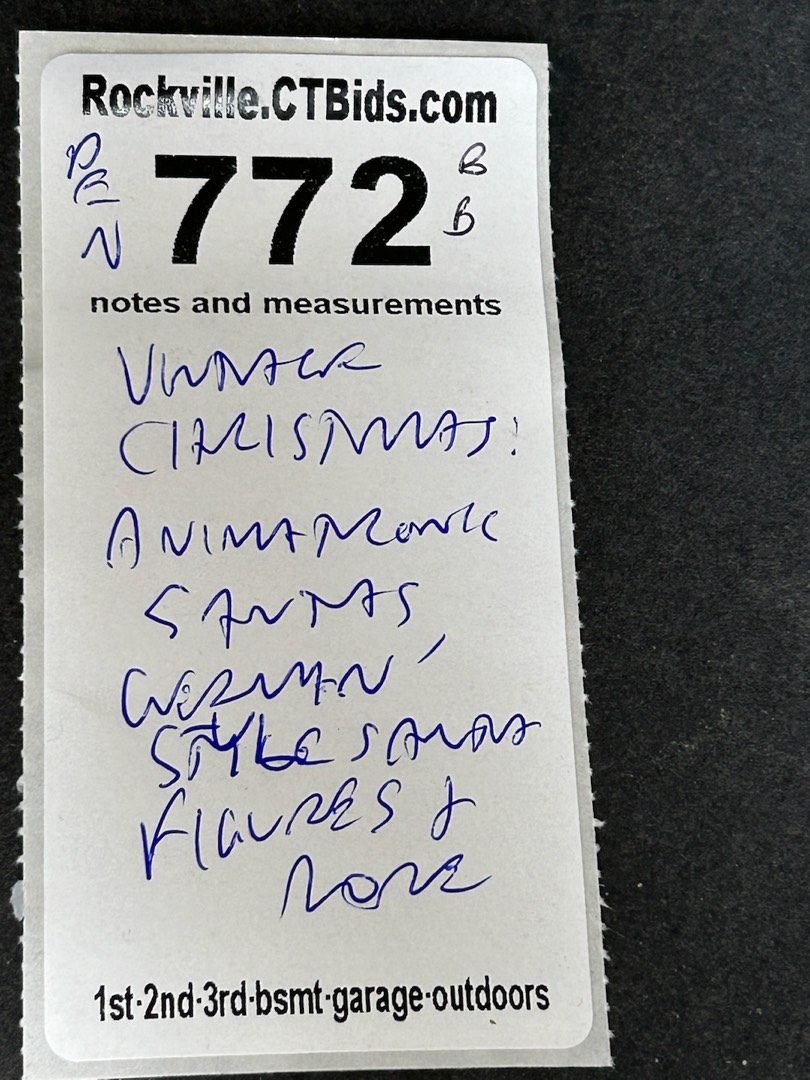 Rockville.CTBids.com
DEN 772 BB
notes and measurements
VINTAGE
CHRISTMAS:
ANIMATRONIC
SANTAS,
GERMAN
STYLE SANTA
FIGURES &
MORE
1st·2nd·3rd·bsmt·garage·outdoors